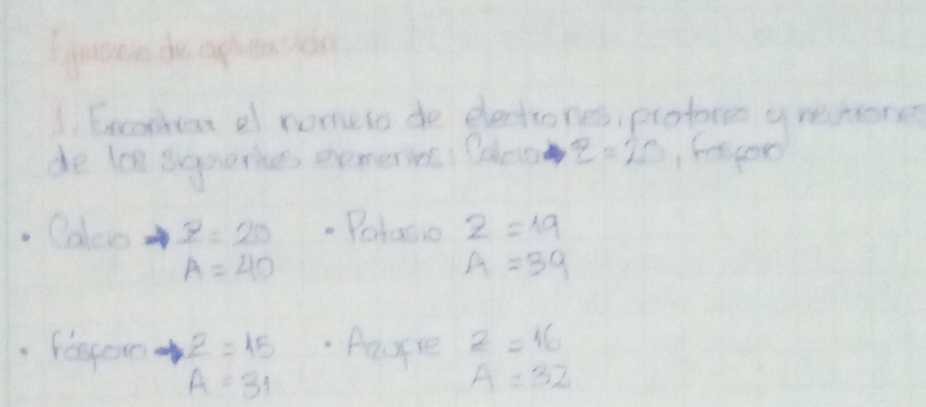 Ejercicio de aplicación
1. Encontrar el numero de electrones, protones y neutrones
de los siguientes elementos: Calcio → Z = 20, Fosforo
• Calcio → Z = 20 • Potasio Z = 19
A = 40 A = 39
• Fósforo → Z = 15 • Azufre Z = 16
A = 31 A = 32